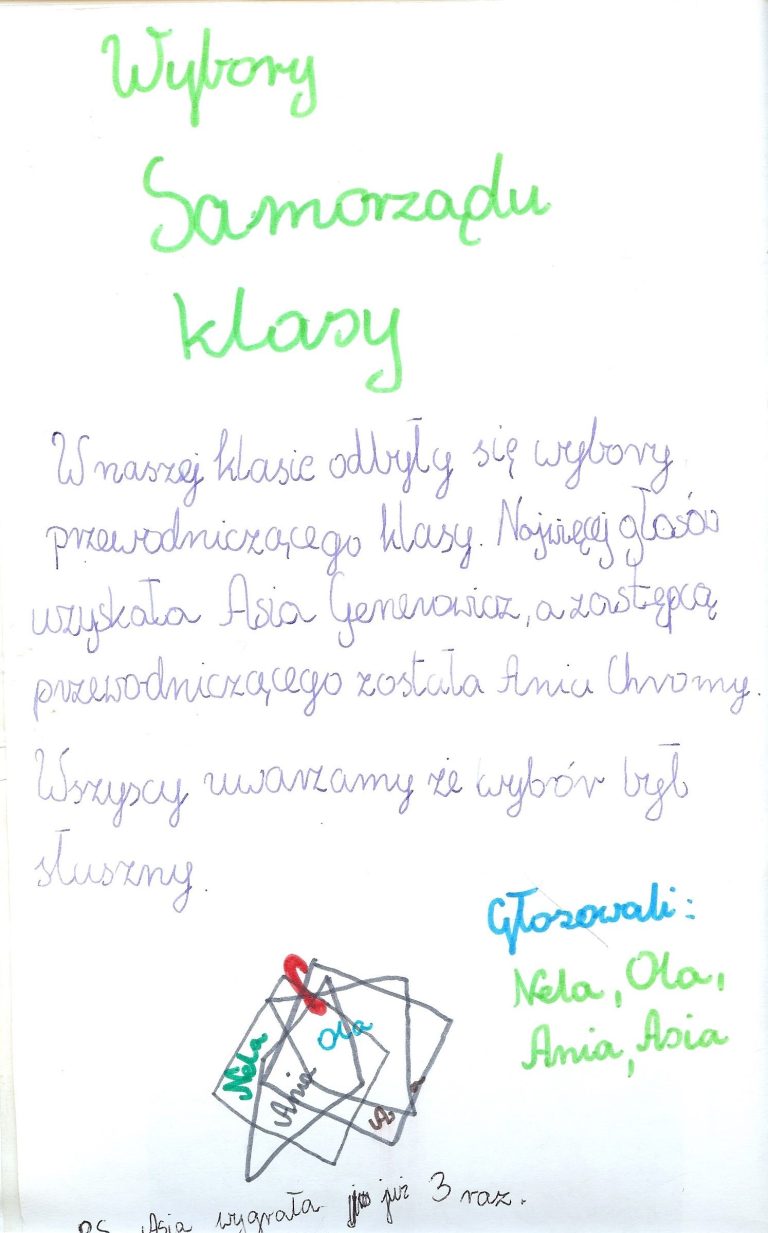 Wybory
Samorządu
klasy
W naszej klasie odbyły się wybory
przewodniczącego klasy. Najwięcej głosów
uzyskała Asia Generowicz, a zastępcą
przewodniczącego została Ania Chromy.
Wszyscy uwarzamy że wybór był
słuszny.
Głosowali:
Nela, Ola,
Ania, Asia
Nela
Ania
Ola
A
PS. Asia wygrała już 3 raz.